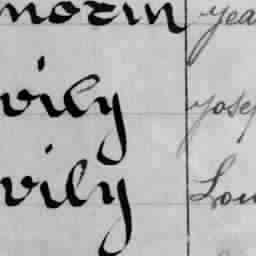 morin yea
vily josep
vily Lou